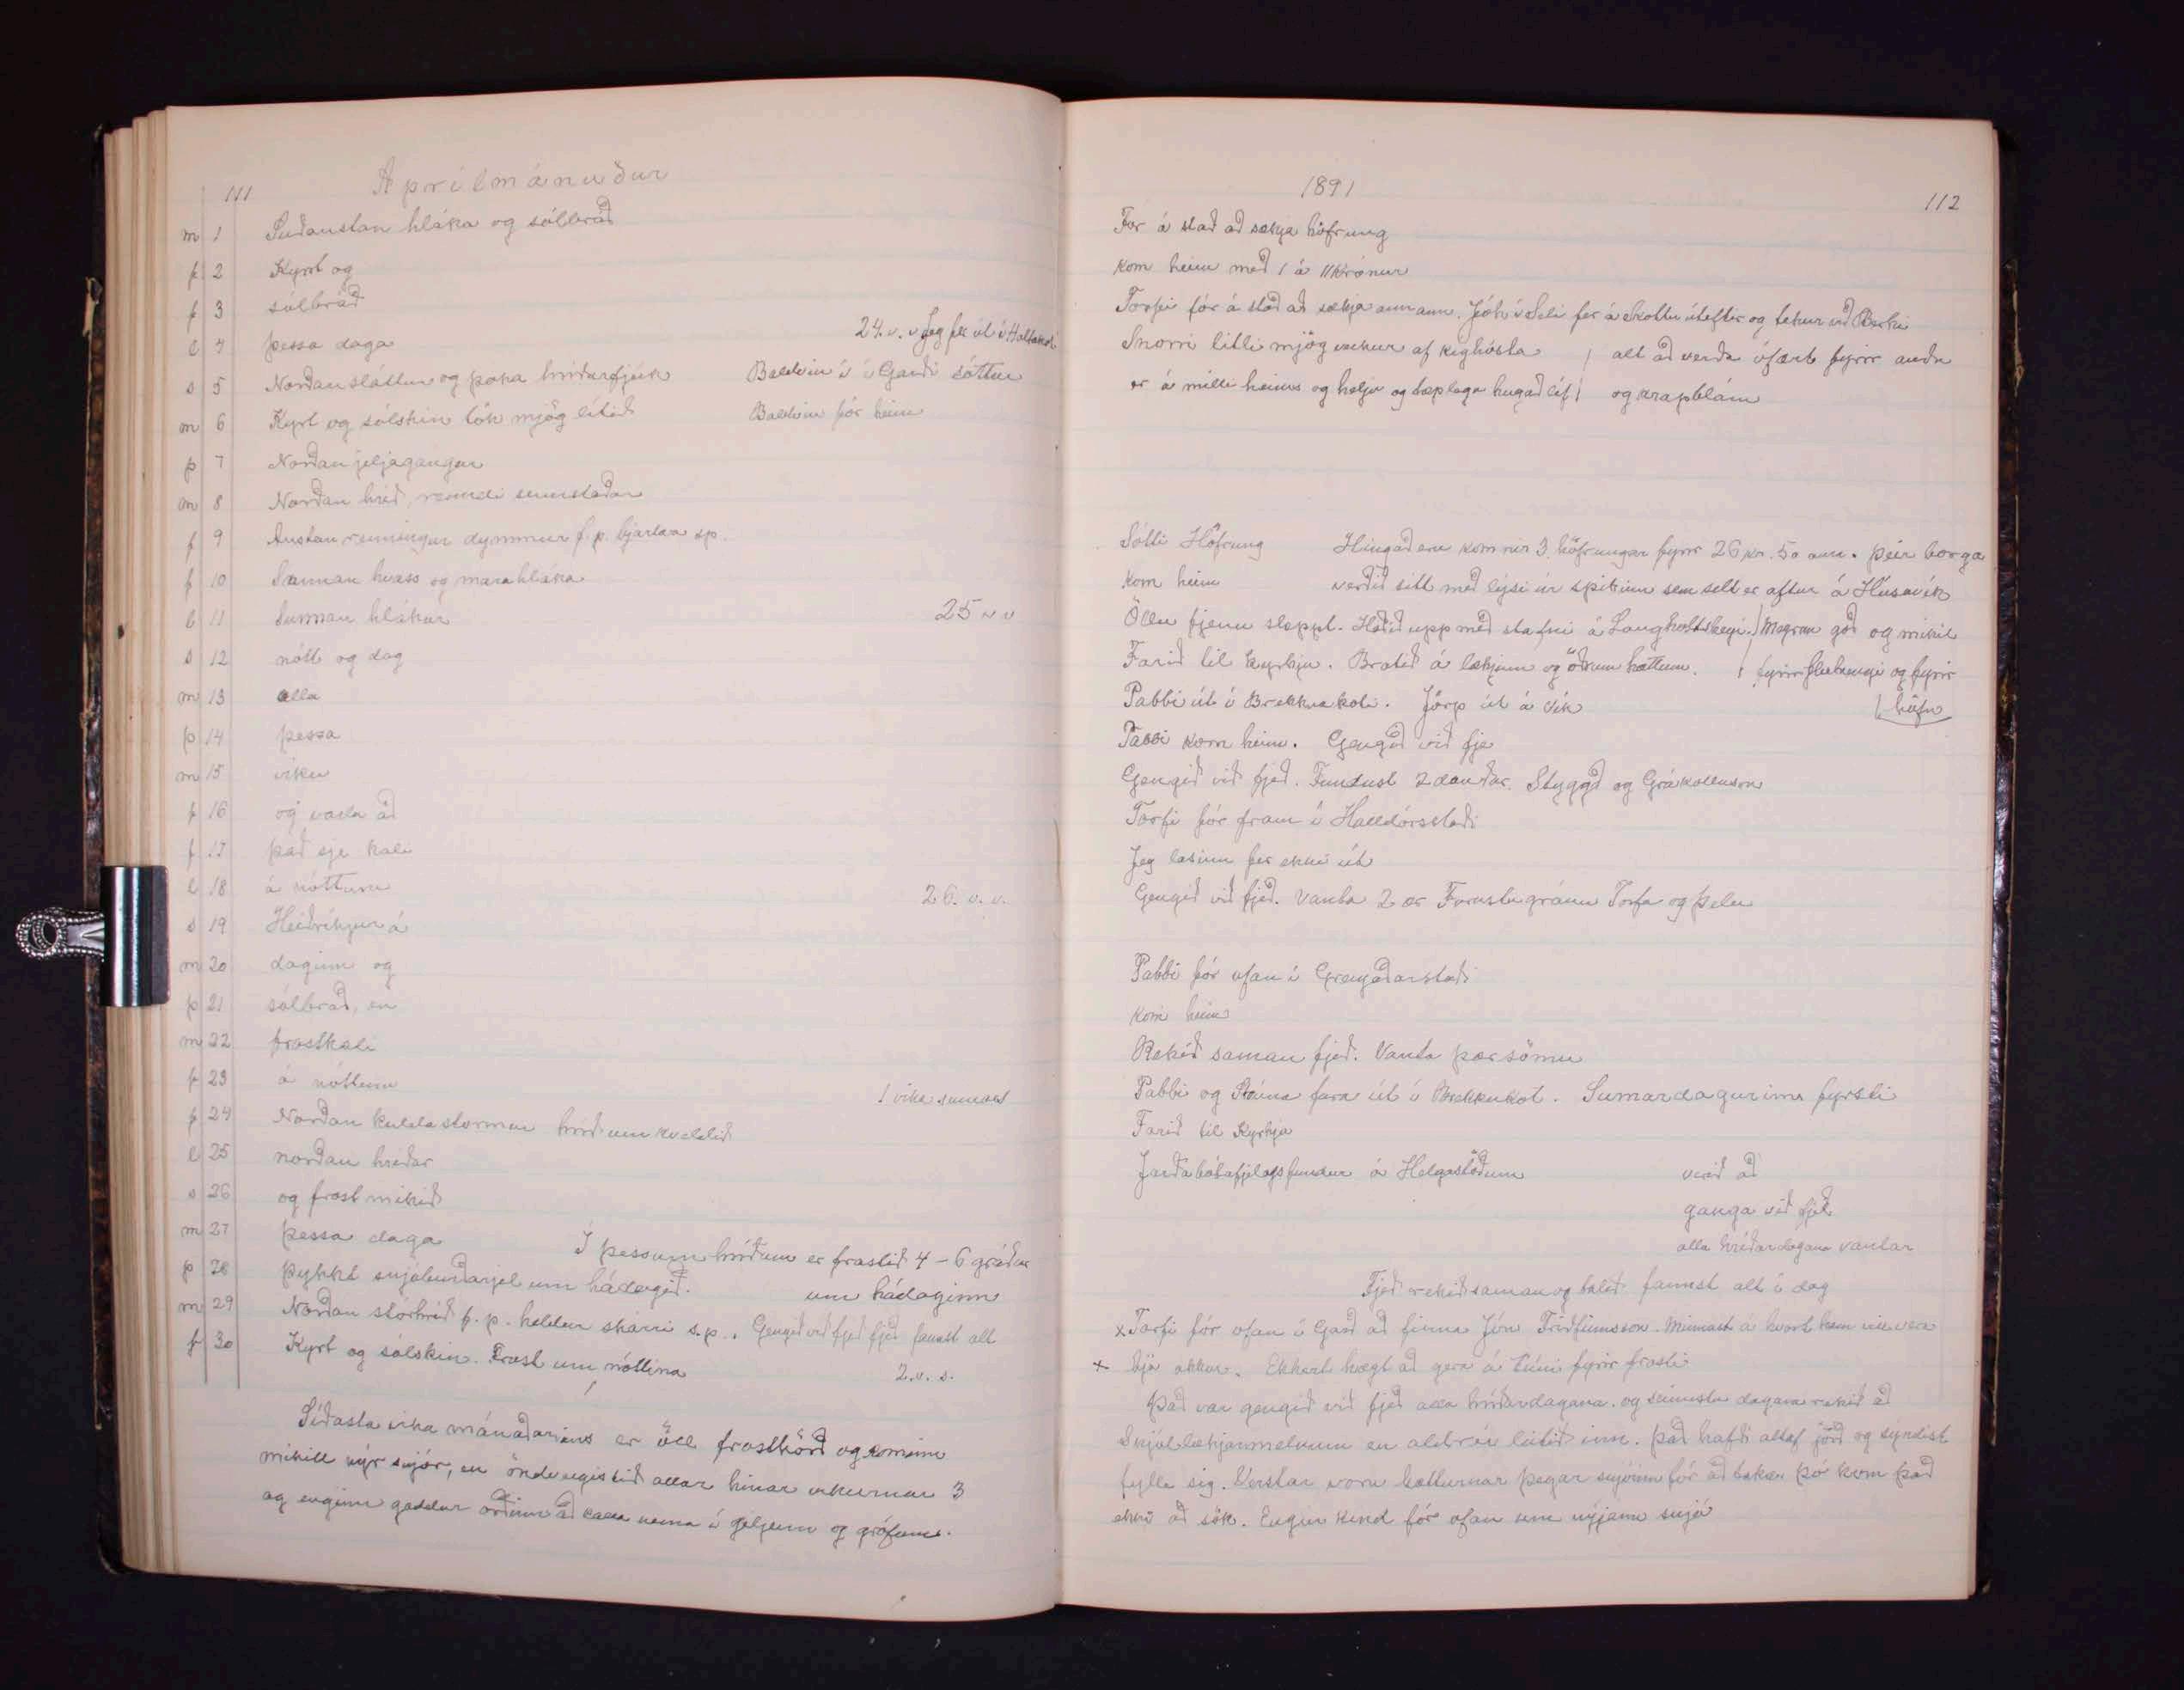 111
Aprílmánuður
m 1 Suðaustan hláka og sólbráð
f 2 Kyrt og
f 3 sólbráð
l 4 þessa daga 24. v. v Jeg fer út í Holtakot
s 5 Norðansláttur og þoka hríðarfjúk Baldvin í Garði sóttur
m 6 Kyrt og sólskin tók mjög lítið Baldvin fór heim
þ 7 Norðan jeljagangur
m 8 Norðan hríð, renndi sumstaðar
f 9 Austan renningur dymmur f. p. bjartara sp.
f 10 Sunnan hvass og marahláka
l 11 Sunnan hlákur 25 v v
s 12 nótt og dag
m 13 alla
þ 14 þessa
m 15 viku
f 16 og varla að
f 17 það sje kali
l 18 á nóttum 26. v. v.
s 19 Heiðríkjur á
m 20 daginn og
þ 21 sólbráð, en
m 22 frostkali
f 23 á nóttum 1 vika sumars
f 24 Norðan kuldastormur hríð um kveldið
l 25 norðan hríðar
s 26 og frost mikið
m 27 þessa daga Í þessum hríðum er frostið 4 - 6 gráður
þ 28 þykkt snjóburðarjel um hádegið. um hádaginn
m 29 Norðan stórhríð f. p. heldur skárri s. p. Gengið við fjeð fjeð fannst alt
f 30 Kyrt og sólskin. Frost um nóttina 2. v. s.
Síðasta vika mánaðarins er öll frosthörð og kominn
mikill nýr snjór, en öndvegistíð allar hinar vikurnar 3
og enginn gaddur orðinn að kalla nema í giljum og grófum.
1891
112
Fór á stað að sækja höfrung
kom heim með 1 á 11 Krónur
Torfi fór á stað að sækja annann. Jóh í Seli fer á Skottu úteftir og tekur við
Snorri litli mjög veikur af kighósta / alt að verða ófært fyrir auðu
er á milli heims og helju og tæplega hugað líf / og krapblám
Sótti Höfrung Hingað eru komnir 3 höfrungar fyrir 26 kr. 50 aur. þeir borga
kom heim verðið sitt með lýsi úr spikinu sem selt er aftur á Húsavík
Öllu fjenu sleppt. Haldið upp með stafni á Langholtseyi. / Magran góð og mikil
Farið til kyrkju. Brotið á lækjum og öðrum hættum. / fyrir og fyrir
Pabbi út í Brekknakoti. Jörp út á Vík / höfn
Pabbi kom heim. Gengið við fje
Gengið við fjeð. Fundust 2 dauðar. Styggð og Grákolluson
Torfi fór fram í Halldórsstaði
Jeg lasinn fer ekki út
Gengið við fjeð. Vanta 2 ær Forustugránu Torfa og Þelu
Pabbi fór ofan í Grenjaðarstaði
kom heim
Rekið saman fjeð. Vanta þær sömu
Pabbi og fara út í Brekkukot. Sumardagurinn fyrsti
Farið til Kyrkju
Jarðabótafjelagsfundur á Helgastöðum verið að
ganga við fjeð
alla hríðardagana vantar
Fjeð rekið saman og talið fannst alt í dag
x Torfi fór ofan í Garð að finna Jón Friðfinnsson. Minnast á hvort hann vill vera
x hjá okkur. Ekkert hægt að gera á túni fyrir frosti
Það var gengið við fjeð alla hríðardagana og seinustu dagana rekið að
Skjóllækjarmelnum en aldrei látið inn. það hafði altaf jörð og sýndist
fylla sig. Verstar voru hætturnar þegar snjóinn fór að taka þó kom það
ekki að sök. Engin kind fór ofan um nýjann snjó